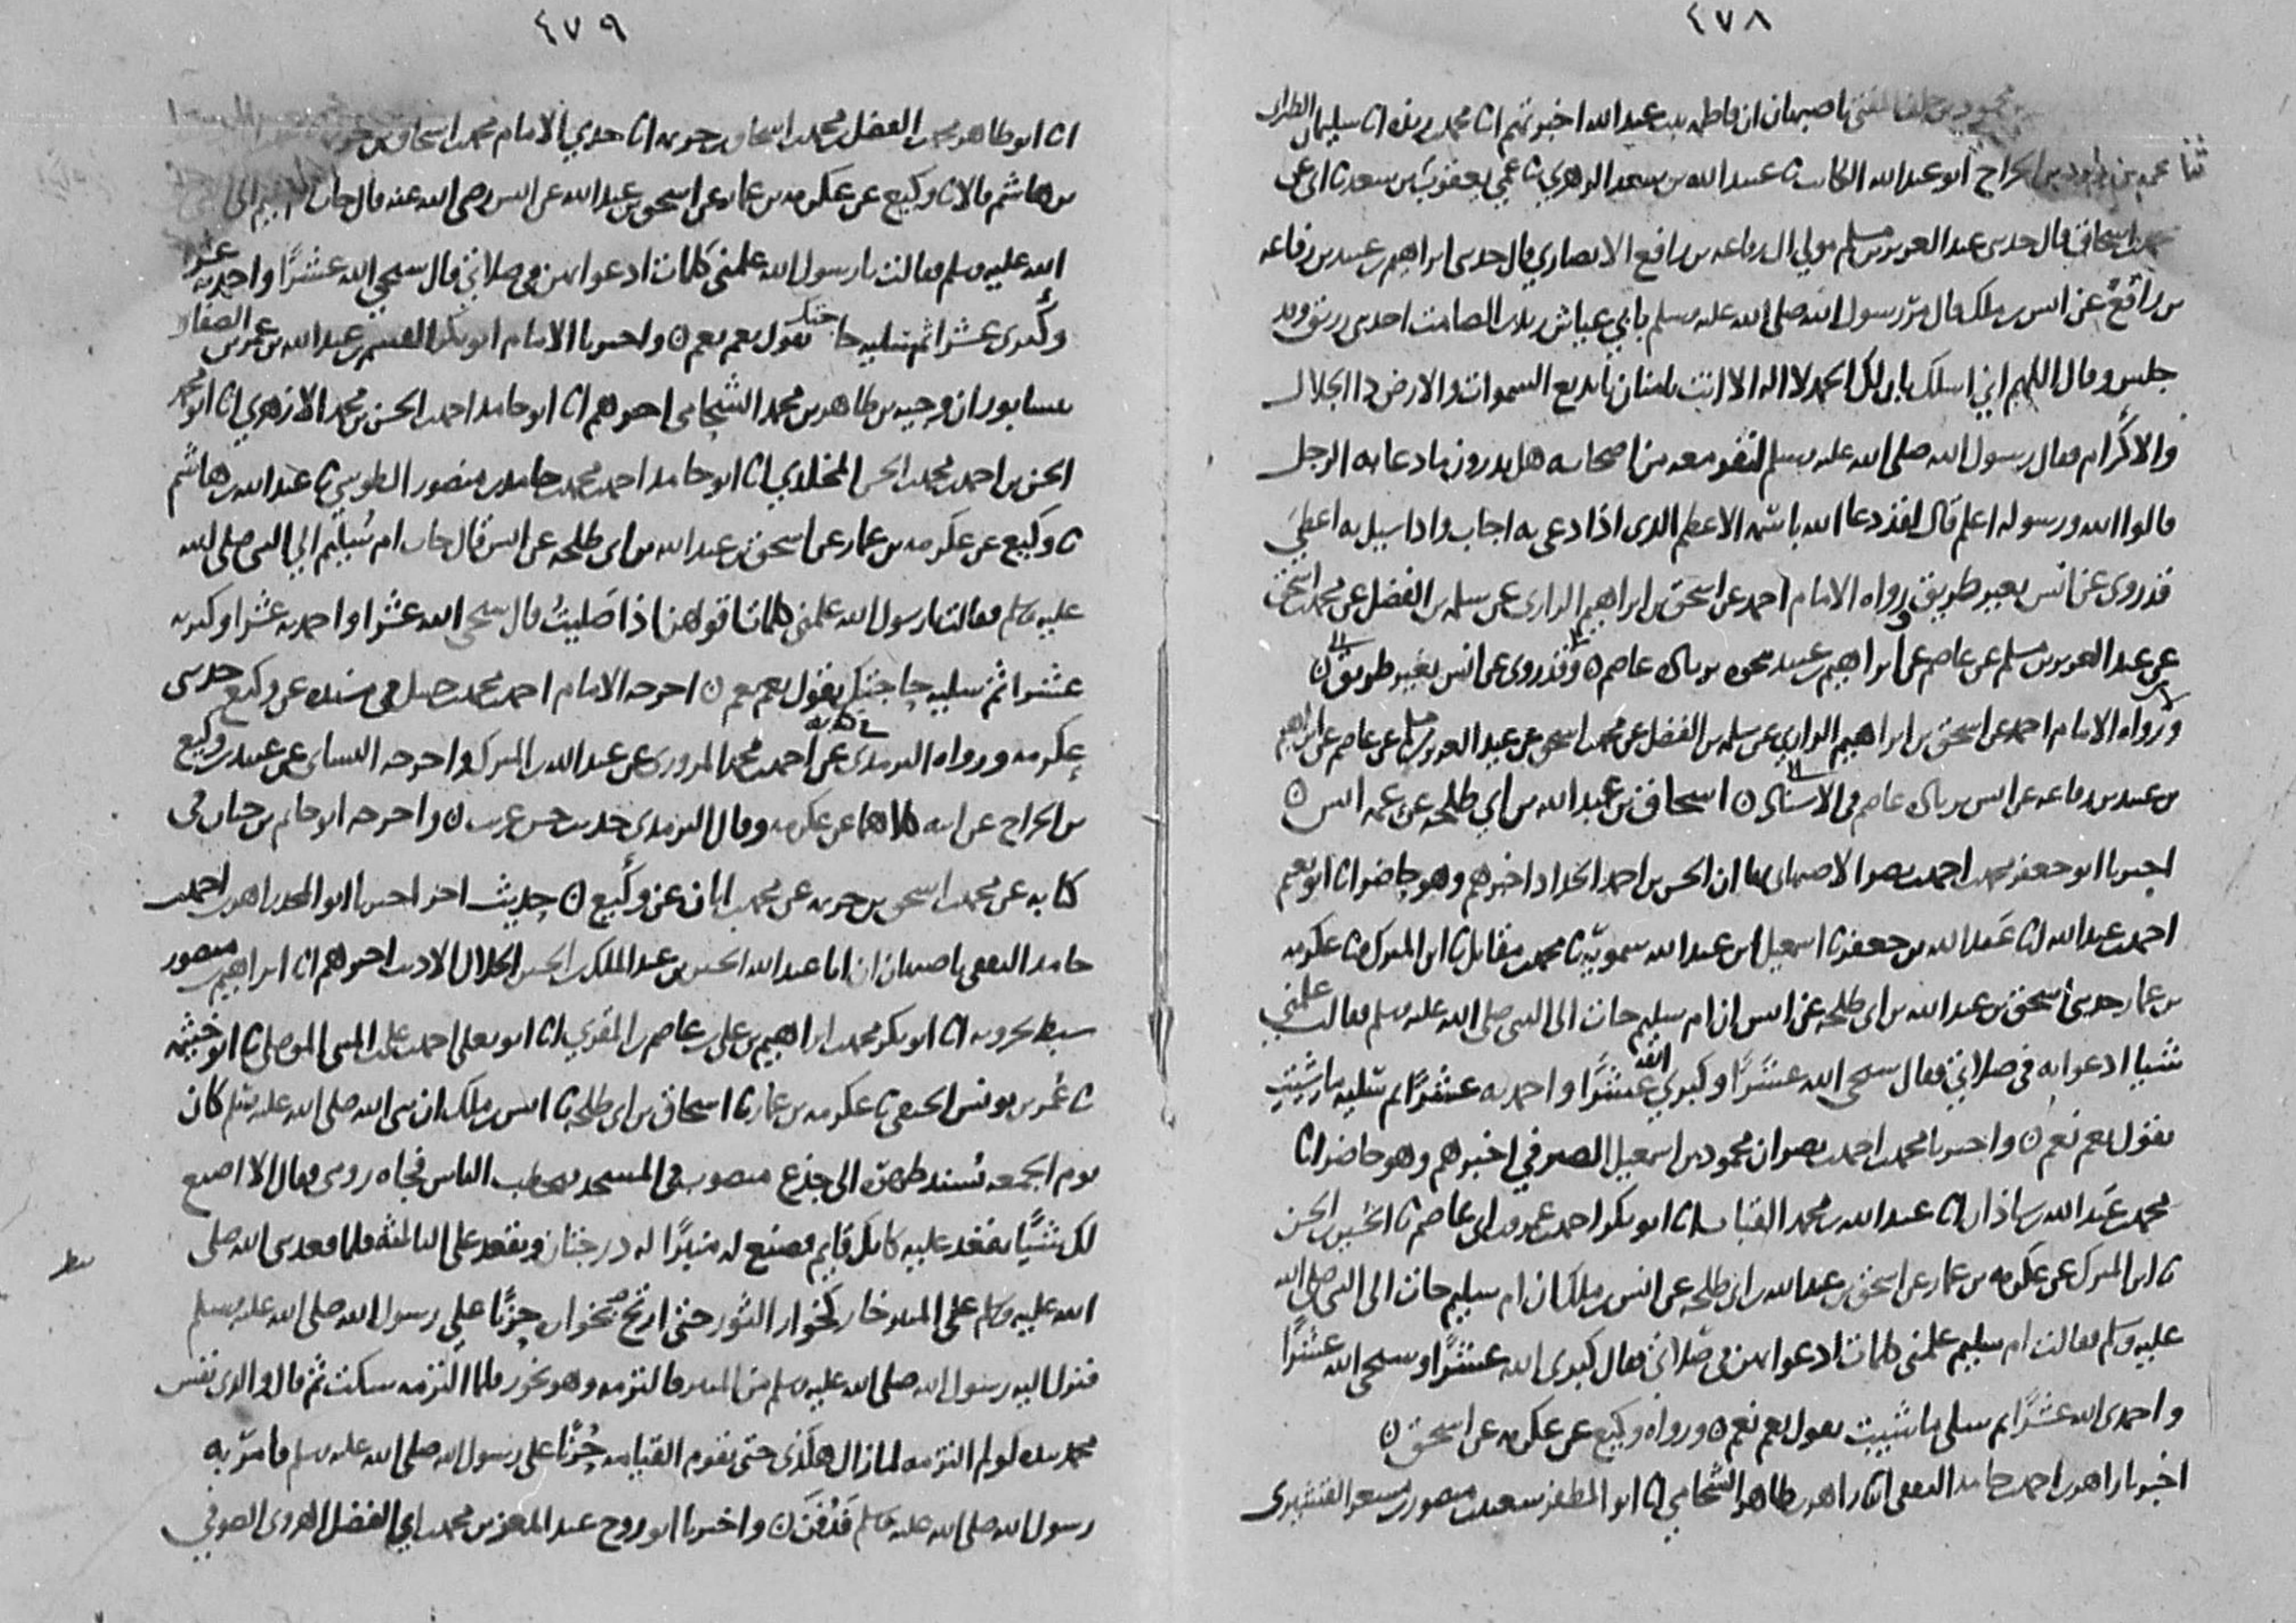 ٤٧٨
محمود بن احمد الثقفي باصبهان ان فاطمه بنت عبد الله اخبرتهم انا محمد بن ريذه انا سليمان الطبراني
ثنا محمد بن داود بن الجراح ابو عبد الله الكاتب نا عبيد الله بن سعد الزهري نا عمي يعقوب بن سعد نا ابي عن
محمد اسحاق قال حدثني عبد العزيز بن مسلم مولي ال رفاعه بن رافع الانصاري قال حدثني ابراهيم بن عبيد بن رفاعه
بن رافع عن انس بن ملك قال مرّ رسول الله صلى الله عليه وسلم بابي عياش زيد بن الصامت احد بني زريق وقد
جلس وقال اللهم اني اسلك بان لك الحمد لا اله الا انت يا منان يا بديع السموات والارض ذا الجلال
والاكرام فقال رسول الله صلى الله عليه وسلم لنفر معه من اصحابه هل تدرون ما دعا به الرجل
قالوا الله ورسوله اعلم قال لقد دعا الله باسمه الاعظم الذي اذا دعي به اجاب واذا سيل به اعطي
قد روى عن انس بغير طريق ورواه الامام احمد عن اسحق بن ابراهيم الرازي عن سلمه بن الفضل عن محمد بن اسحق
عن عبد العزيز بن مسلم عن عاصم عن ابراهيم بن عبيد نحوه عاصم ن وقد روى عن انس بغير طريق ن
ورواه الامام احمد عن اسحق بن ابراهيم الرازي عن سلمه بن الفضل عن محمد بن اسحق عن عبد العزيز بن مسلم عن عاصم عن ابراهيم
بن عبيد بن رفاعه عن انس عاصم في الاسناد ن اسحاق بن عبد الله بن ابي طلحه عن عمه انس ن
اخبرنا ابو جعفر محمد بن احمد بن نصر الاصبهاني بها ان الحسن بن احمد الحداد اخبرهم وهو حاضر انا ابو نعيم
احمد بن عبد الله انا عبد الله بن جعفر نا اسمعيل بن عبد الله سمويه نا محمد بن مقاتل نا ابن المبرك نا عكرمه
بن عمار حدثني اسحق بن عبد الله بن ابي طلحه عن انس ان ام سليم جات الى النبي صلى الله عليه وسلم فقالت علمني
شيا ادعوا به في صلاتي فقال سبحي الله عشرًا وكبري الله عشرًا واحمديه عشرًا ثم سليه ما شيت
يقول نعم نعم ن واخبرنا محمد بن احمد بن نصر ان محمود بن اسمعيل الصيرفي اخبرهم وهو حاضر انا
محمد بن عبد الله بن شاذان انا عبد الله بن محمد القباب انا ابو بكر احمد بن عمرو بن ابي عاصم نا الحسين بن الحسن
نا ابن المبرك عن عكرمه بن عمار عن اسحق بن عبد الله بن ابي طلحه عن انس بن ملك ان ام سليم جات الى النبي صلى الله
عليه وسلم فقالت ام سليم علمني كلمات ادعوا بهن في صلاتي فقال كبري الله عشرًا وسبحي الله عشرًا
واحمدي الله عشرًا ثم سلي ما شيت يقول نعم نعم ن ورواه وكيع عن عكرمه عن اسحق ن
اخبرنا زاهر بن احمد بن حامد الثقفي انا زاهر بن طاهر الشحامي انا ابو المظفر سعيد بن منصور بن مسعر القشيري
٤٧٩
انا ابو طاهر محمد بن الفضل بن محمد بن اسحاق بن خزيمه انا جدي الامام محمد بن اسحاق بن خزيمه
بن هاشم قالا نا وكيع عن عكرمه بن عمار عن اسحق بن عبد الله عن انس رضي الله عنه قال جات ام سليم الى
الله عليه وسلم فقالت يا رسول الله علمني كلمات ادعوا بهن في صلاتي قال سبحي الله عشرًا واحمديه عشرا
وكبري عشرا ثم سليه حاجتك يقول نعم نعم ن واخبرنا الامام ابو بكر القسم بن عبد الله بن عمر بن الصفار
بنيسابور ان وجيه بن طاهر بن محمد الشحامي اخبرهم انا ابو حامد احمد بن الحسن بن محمد الازهري انا ابو محمد
الحسن بن احمد بن محمد بن الحسن المخلدي انا ابو حامد احمد بن محمد بن حامد بن منصور الطوسي نا عبد الله بن هاشم
نا وكيع عن عكرمه بن عمار عن اسحق بن عبد الله بن ابي طلحه عن انس قال جات ام سُليم الي النبي صلى الله
عليه وسلم فقالت يا رسول الله علمني كلمات اقولهن اذا صليتُ قال سبحي الله عشرا واحمديه عشرا وكبريه
عشرا ثم سليه حاجتك يقول نعم نعم ن اخرجه الامام احمد بن محمد بن حنبل في مسنده عن وكيع حدثني
عكرمه ورواه الترمذي عن احمد بن محمد المروزي عن عبد الله بن المبرك واخرجه النساي عن عبيد بن وكيع
بن الجراح عن ابيه كلاهما عن عكرمه وقال الترمذي حديث حسن غريب ن واخرجه ابو حاتم بن حبان في
كتابه عن محمد بن اسحق بن خزيمه عن محمد بن ابان عن وكيع ن حديث اخر اخبرنا ابو المجد زاهر بن احمد بن
حامد الثقفي باصبهان ان ابا عبد الله الحسين بن عبد الملك بن الحسين الخلال الاديب اخبرهم انا ابراهيم بن منصور
سبط بحرويه انا ابو بكر محمد بن ابراهيم بن علي بن عاصم بن المقري انا ابو يعلى احمد بن علي بن المثنى الموصلي نا ابو خيثمه
نا عُمر بن يونس الحنفي نا عكرمه بن عمار نا اسحاق بن ابي طلحه نا انس بن ملك ان نبي الله صلى الله عليه وسلم كان
يوم الجمعه يُسند ظهره الى جذع منصوب في المسجد يخطب الناس فجاه رومي فقال الا اصنع
لك شيًا تقعد عليه كانك قايم فصنع له منبرًا له درجتان ويقعد على الثالثه فلما قعد نبي الله صلى
الله عليه وسلم على المنبر خار كخوار الثور حتى ارتج بخواره حزنًا علي رسول الله صلى الله عليه وسلم
فنزل اليه رسول الله صلى الله عليه وسلم من المنبر فالتزمه وهو يخور فلما التزمه سكت ثم قال والذي نفس
محمد بيده لو لم التزمه لما زال هكذى حتى تقوم القيامه حُزنًا على رسول الله صلى الله عليه وسلم فامرّ به
رسول الله صلى الله عليه وسلم فَدُفنَ ن واخبرنا ابو روح عبد المعز بن محمد بن ابي الفضل الهروي الصوفي